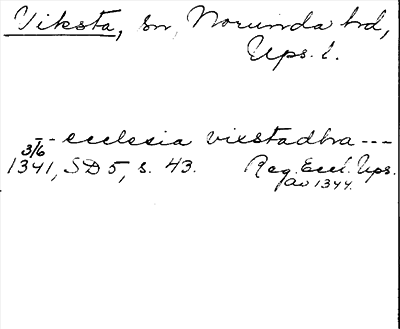 Viksta, sn, Norunda hd,
Ups. l.
-- ecclesia vixstadhra ---
3/6
1341, SD 5, s. 43. Reg. Eccl. Ups.
av 1344.